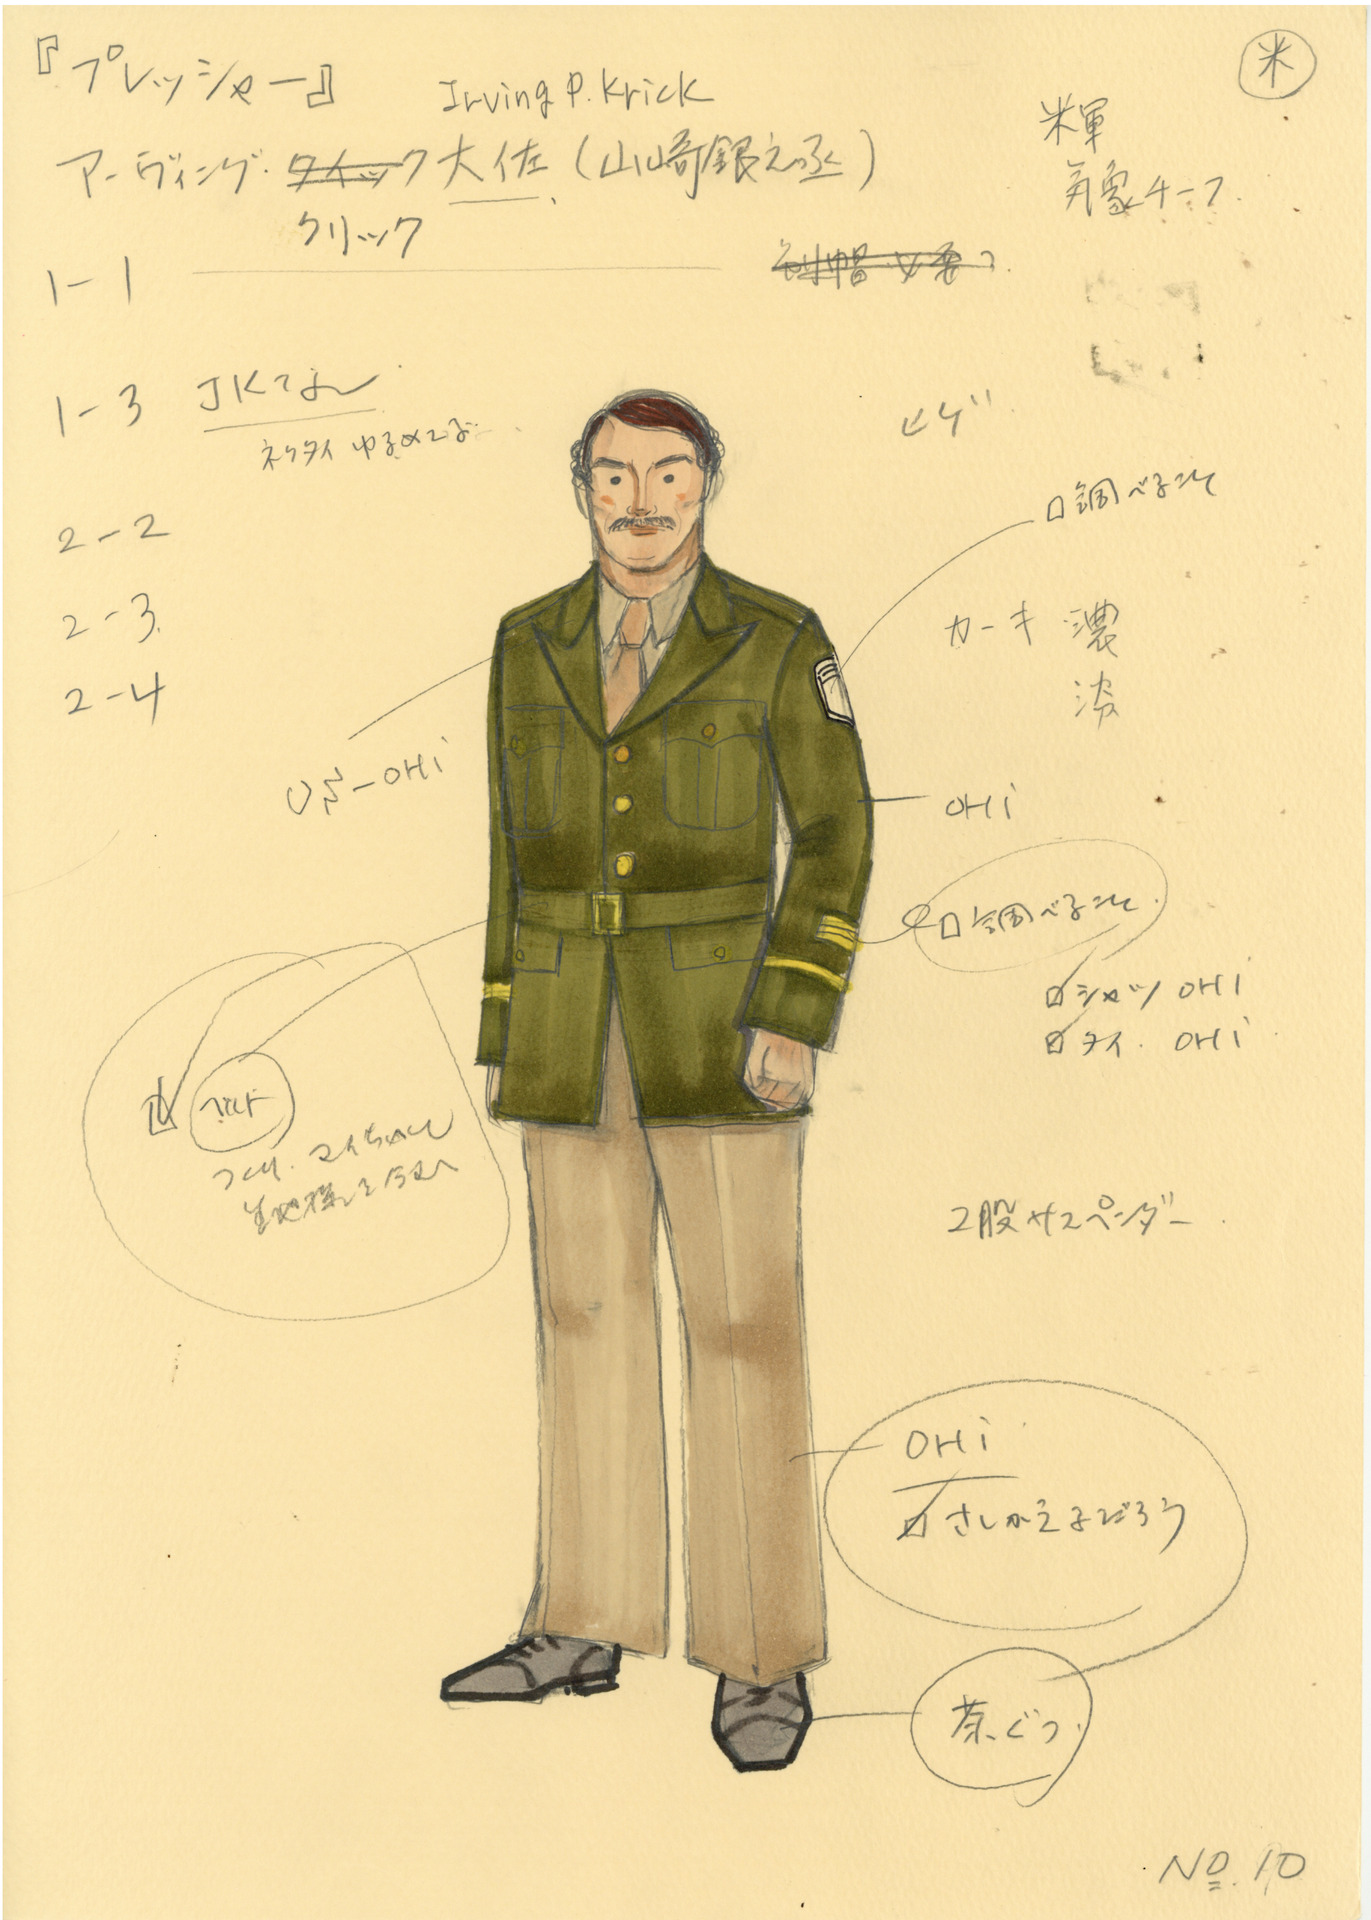 『プレッシャー』
Irving P. Krick
米
アーヴィング・タイック大佐(山﨑銀之丞)
クリック
米軍
気象チーフ
制帽 必要?
1-1
1-3 JKなし
ネクタイ ゆるめてる
ヒゲ
2-2
2-3
2-4
□調べること
カーキ 濃
淡
US-OHi
OHi
□調べること
□シャツ OHi
□タイ. OHi
ベルト
2股サスペンダー
OHi
□さしかえるだろう
茶ぐつ
No.10